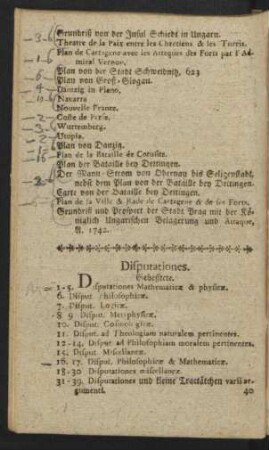 Grundriß von der Insul Schiedt in Ungarn.
Theatre de la Paix entre les Chretiens & les Turcs.
Plan de Cartagene avec les Attaques des Forts par l'Admiral Vernon.
Plan von der Stadt Schweidnitz, 623
Plan von Groß-Glogau.
Dantzig in Plano.
Navarra
Nouvelle France.
Coste de Perse.
Wurtemberg.
Utopia.
Plan von Dantzig.
Plan de la Bataille de Dettingen.
Plan der Bataille bey Dettingen.
Der Mayn-Strom von Obernau bis Seligenstadt,
nebst dem Plan von der Bataille bey Dettingen.
Carte von der Bataille bey Dettingen.
Plan de la Ville & Rade de Cartagene & de ses Forts.
Grundriß und Prospect der Stadt Prag mit der Königlich Ungarischen Belagerung und Attaque,
A. 1742.
Disputationes.
Geheftete.
1-5. Disputationes Mathematicæ & physicæ.
6. Disput. Philosophicæ.
7. Disput. Logicæ.
8 9 Disput. Metaphysicæ.
10. Disput.
11. Disput. ad Theologiam naturalem pertinentes.
12-14. Disput ad Philosophiam moralem pertinentes.
15. Disput. Miscellaneæ.
16. 17. Disput. Philosophicæ & Mathematicæ.
18-30 Disputationes miscellaneæ.
31-39. Disputationes und kleine Tractätchen varii argumenti.
40